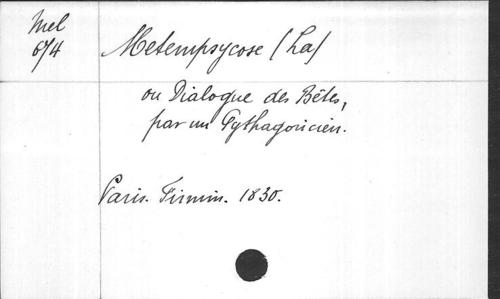 Mel
674
Metempsycose (La)
ou Dialogue des Bêtes,
par un Pythagoricien.
Paris. Firmin. 1830.